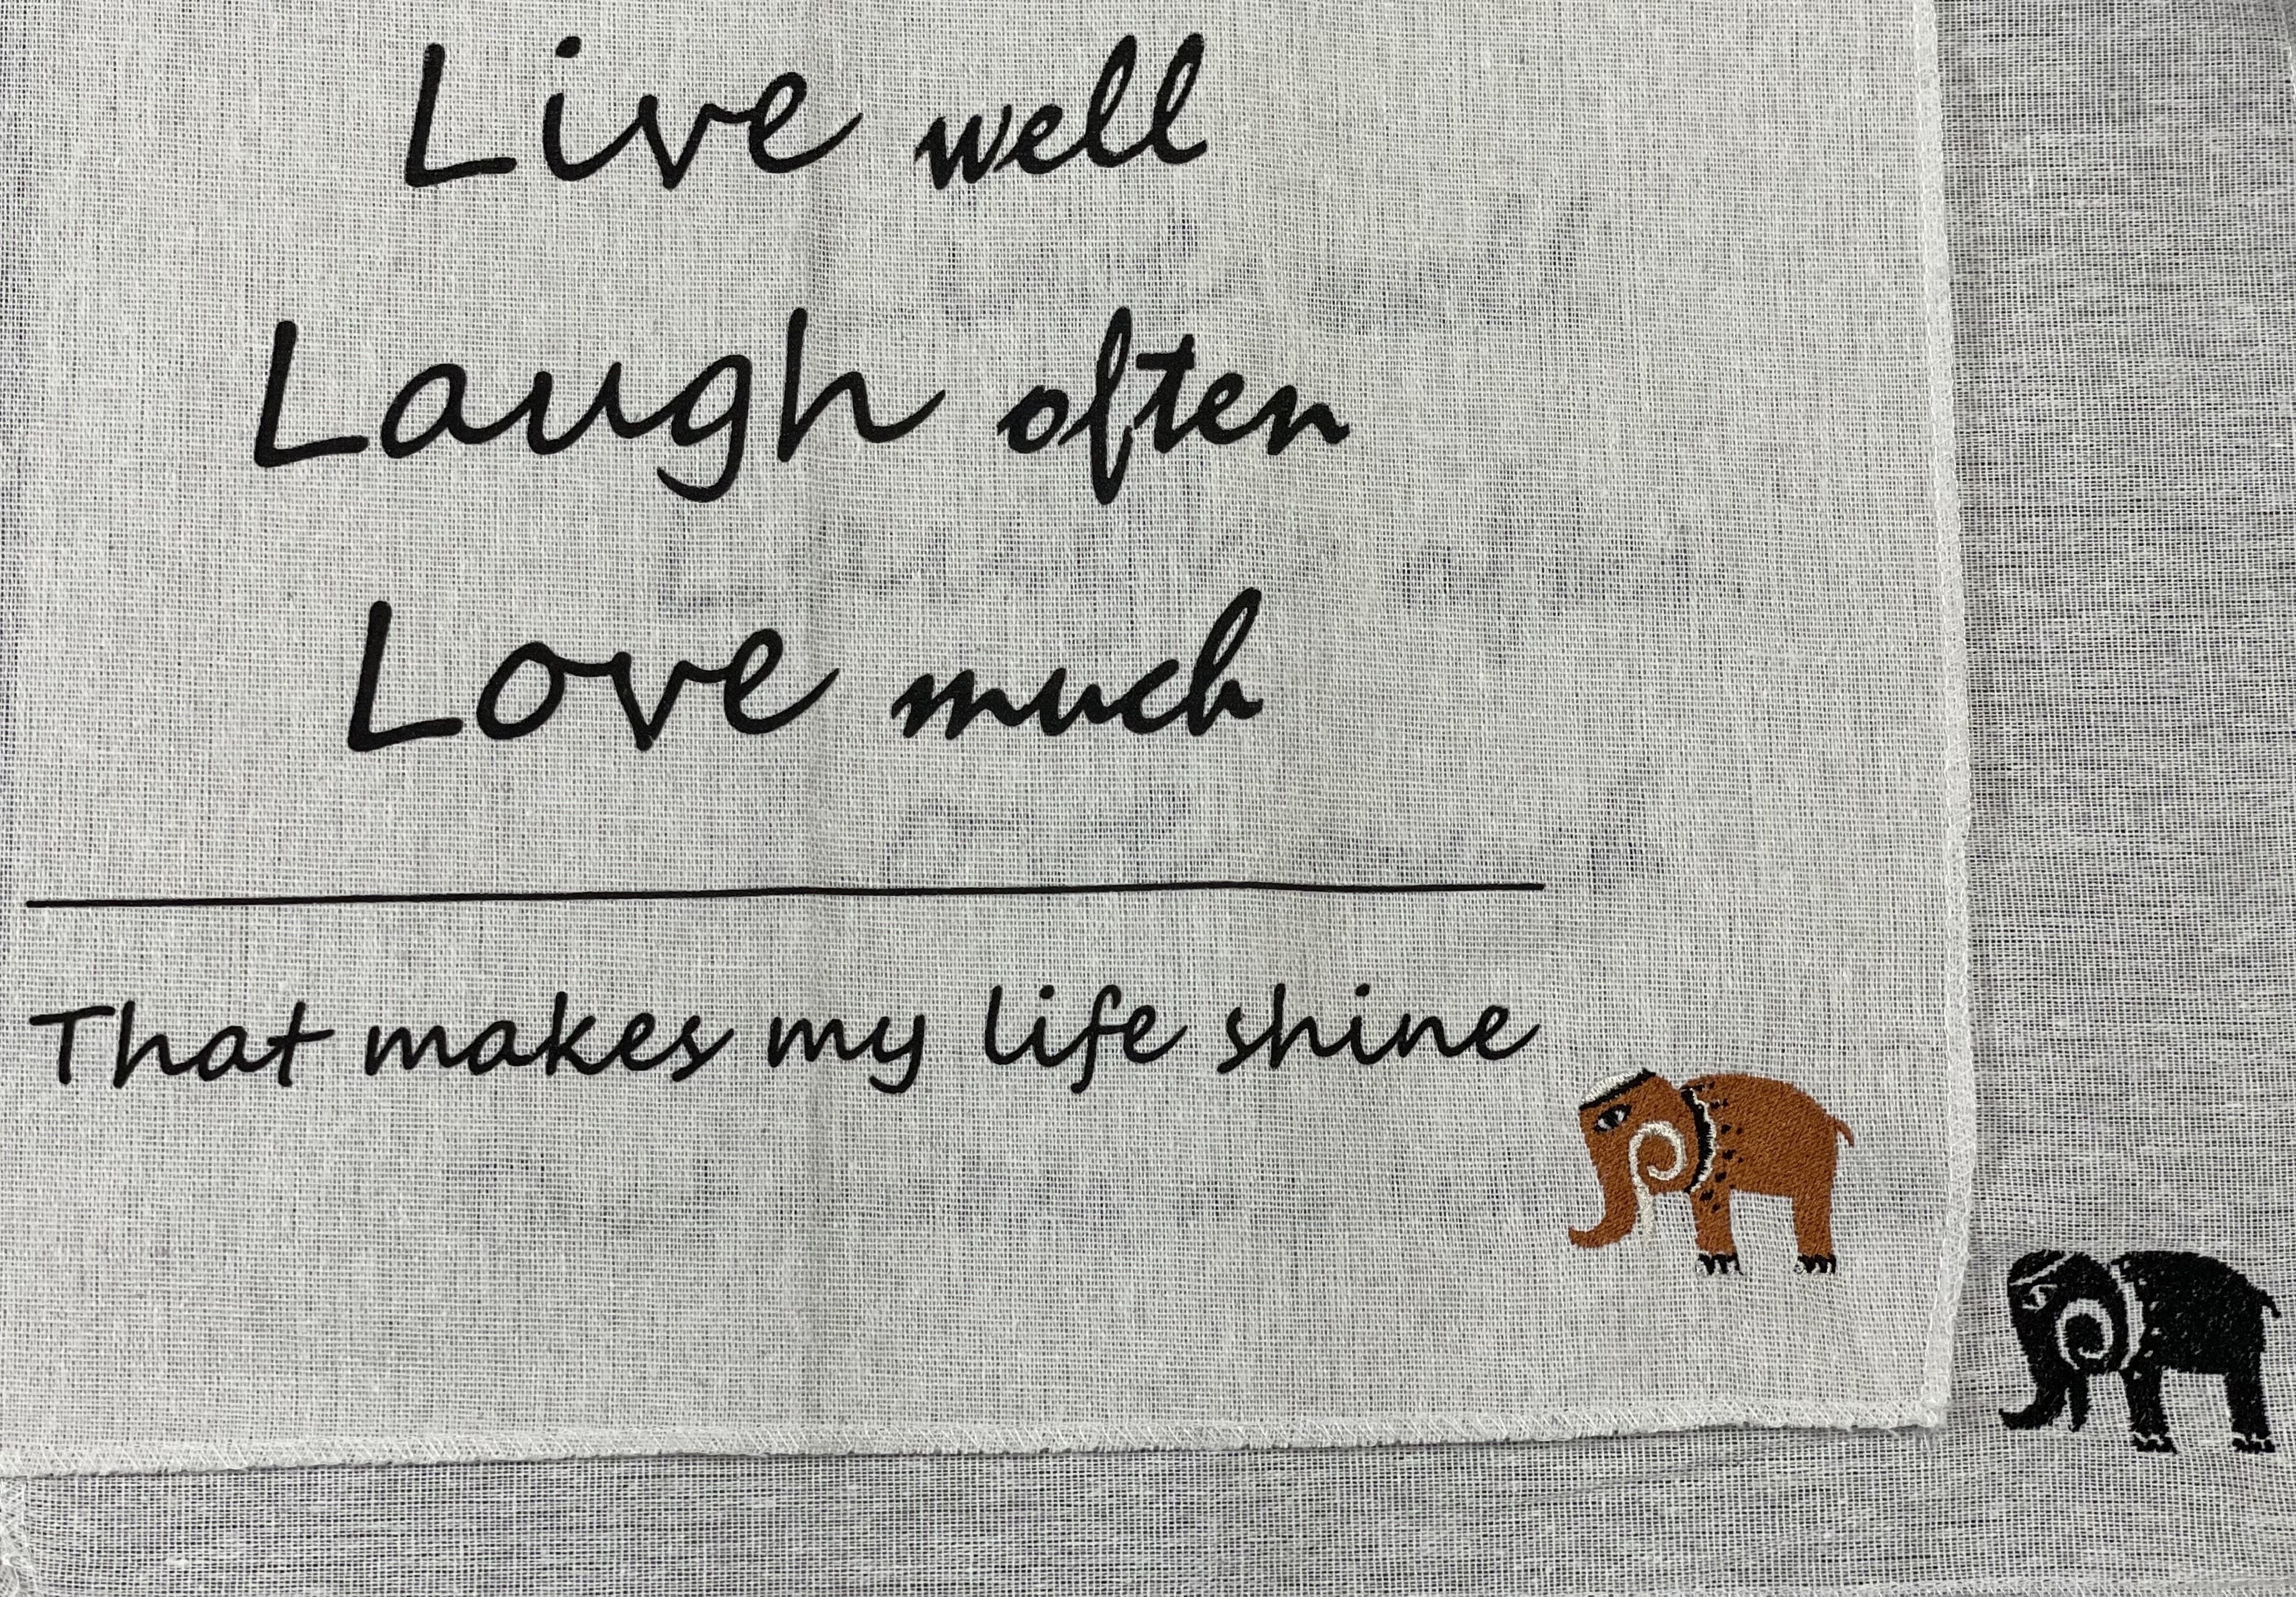 Live well
Laugh often
Love much
That makes my life shine